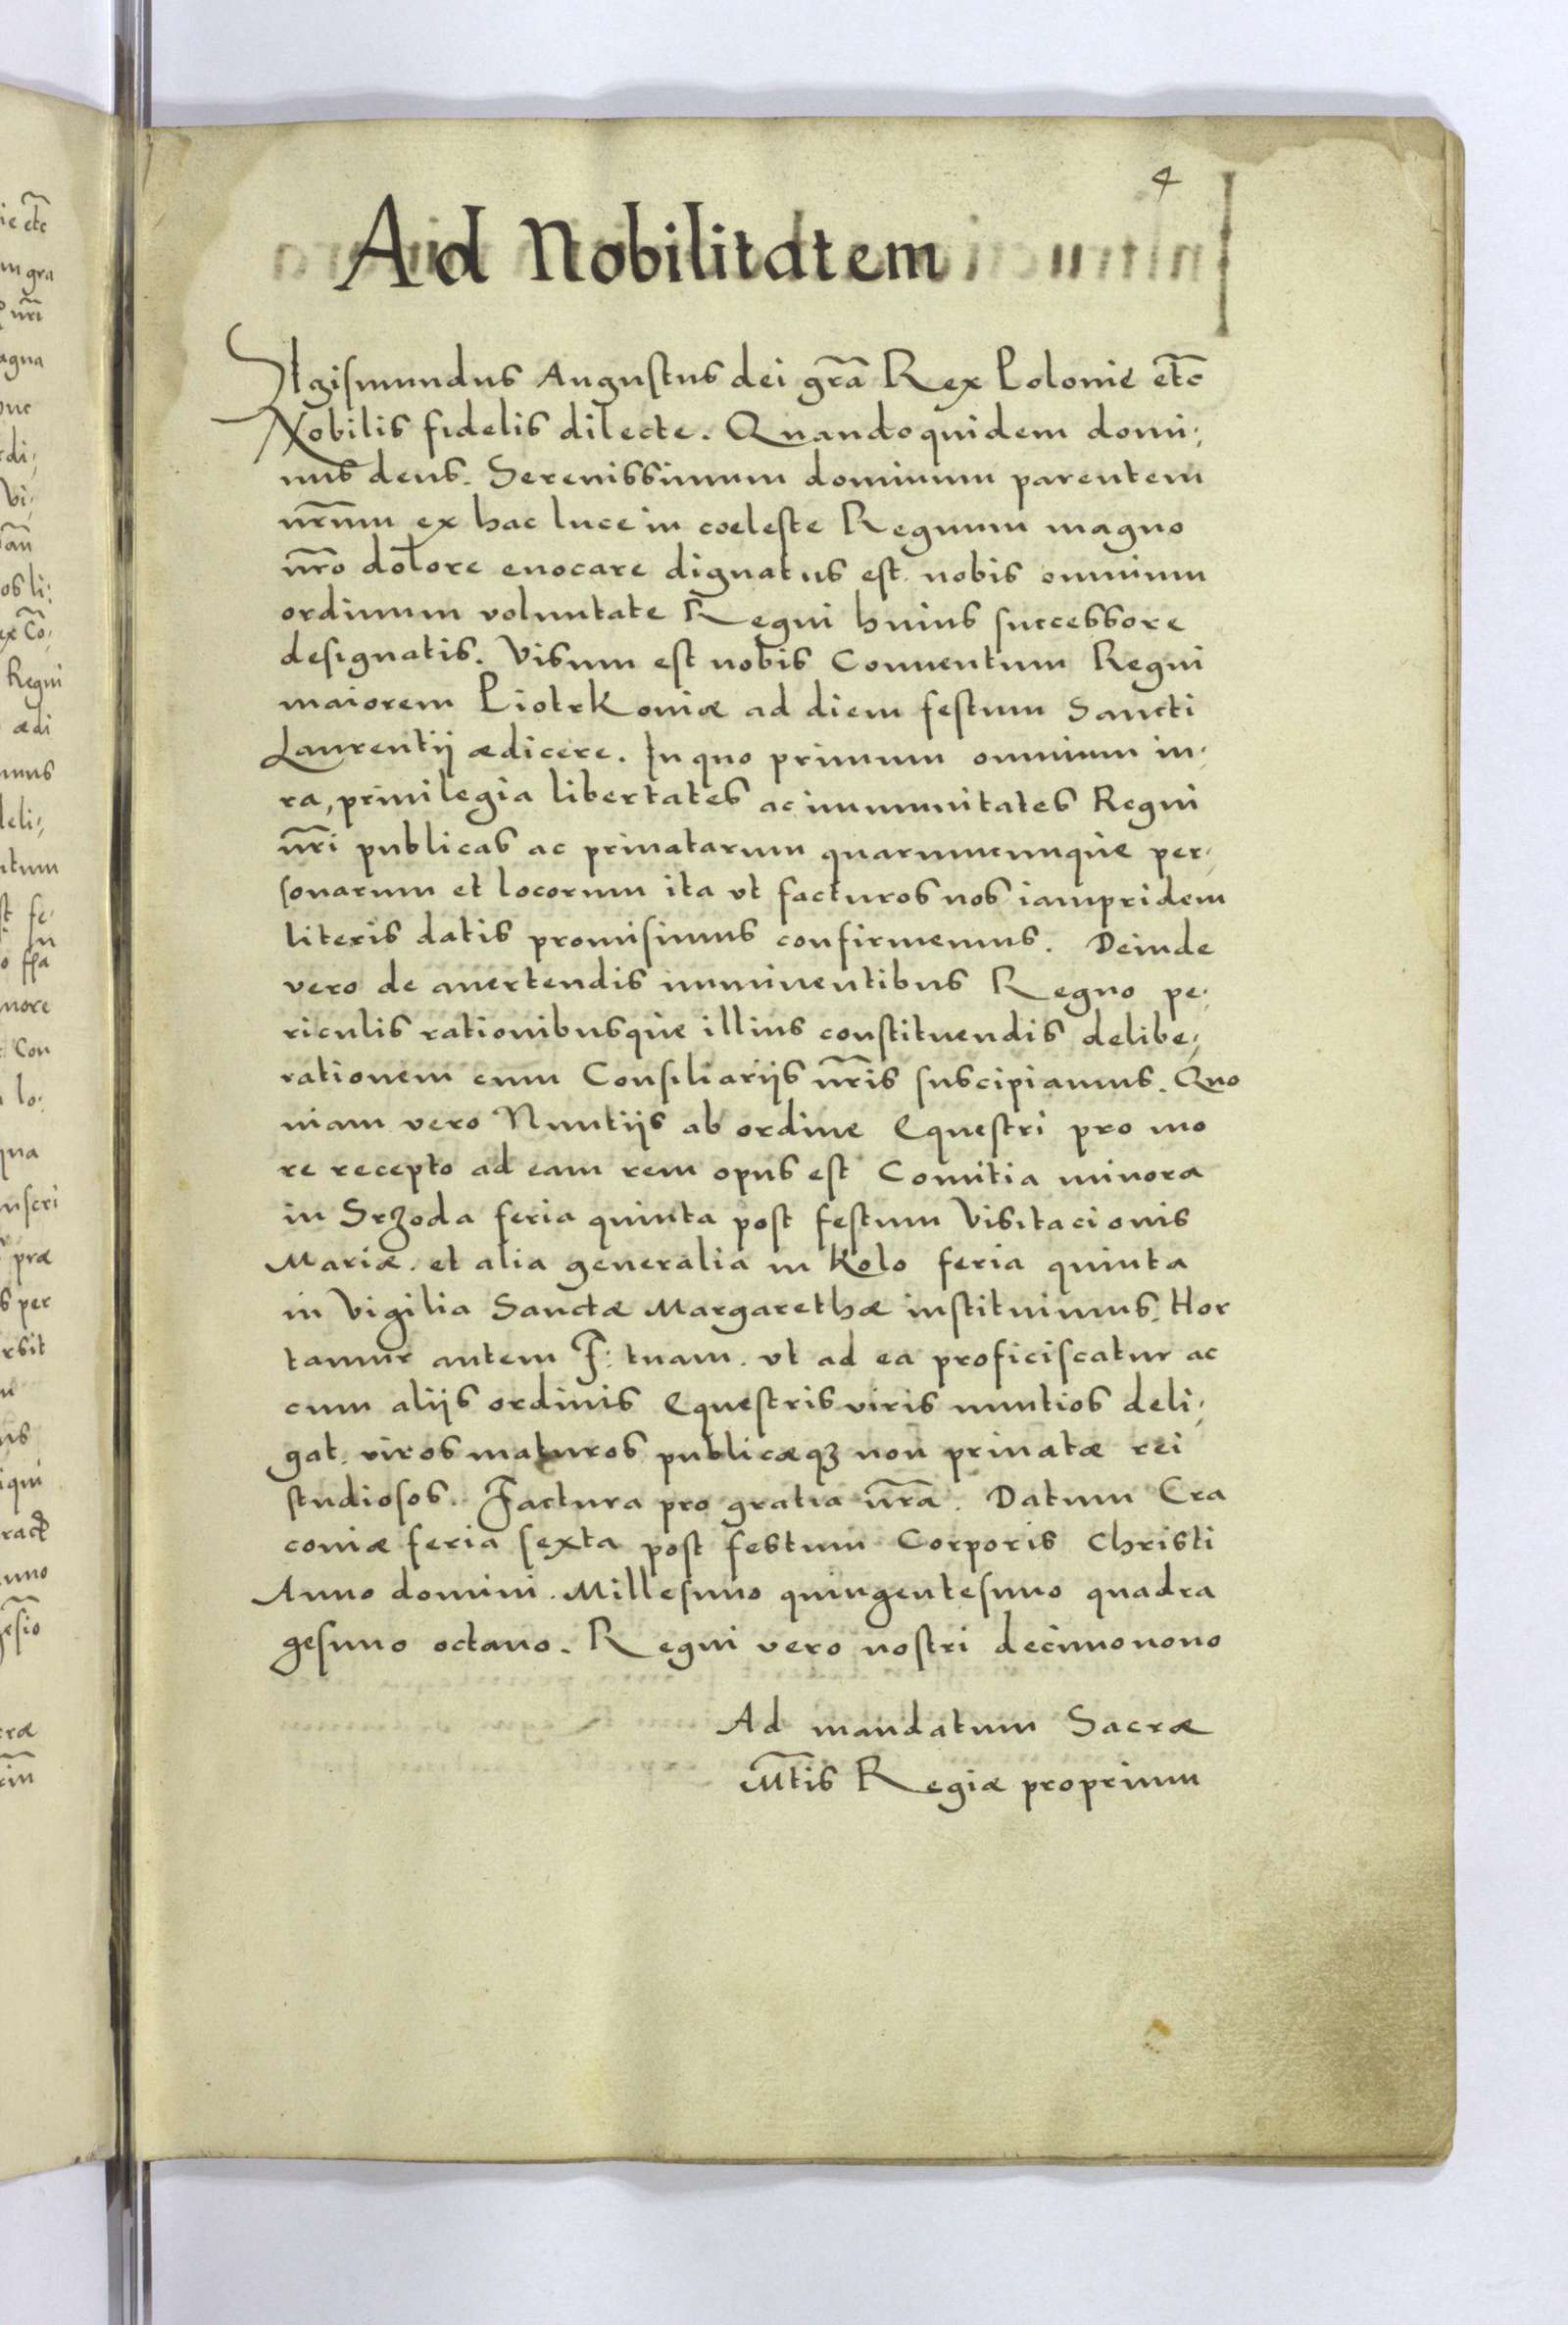 4
Ad Nobilitatem
SIgismundus Augustus dei gr̃a Rex Polonie et̃c
Nobilis fidelis dilecte. Quandoquidem domi,
nus deus. Serenissimum dominum parentem
nr̃um ex hac luce in coeleste Regnum magno
nr̃o dolore euocare dignatus est. nobis omnium
ordinum voluntate Regni huius successore
designatis. Visum est nobis Conuentum Regni
maiorem Piotrkouiæ ad diem festum Sancti
Laurentij ædicere. In quo primum omnium iu,
ra, priuilegia libertates ac immunitates Regni
nr̃i publicas ac priuatarum quarumcunque per,
sonarum et locorum ita vt facturos nos iampridem
literis datis promisimus confirmemus. Deinde
vero de auertendis imminentibus Regno pe,
riculis rationibusque illius constituendis delibe,
rationem cum Consiliarijs nr̃is suscipiamus. Quo
niam vero Nuntijs ab ordine Equestri pro mo
re recepto ad eam rem opus est Comitia minora
in Srzoda feria quinta post festum Visitacionis
Mariæ. et alia generalia in Kolo feria quinta
in Vigilia Sanctæ Margarethæ instituimus. Hor
tamur autem F: tuam. vt ad ea proficiscatur ac
cum alijs ordinis Equestris viris nuntios deli,
gat. viros maturos publicæqz non priuatæ rei
studiosos. Factura pro gratia nr̃a. Datum Cra
couiæ feria sexta post festum Corporis Christi
Anno domini. Millesimo quingentesimo quadra
gesimo octauo. Regni vero nostri decimonono
Ad mandatum Sacræ
Mt̃is Regiæ proprium